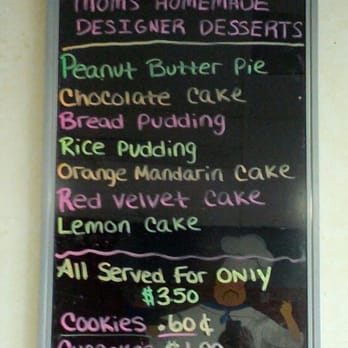 MOMS HOMEMADE
DESIGNER DESSERTS
Peanut Butter Pie
Chocolate Cake
Bread Pudding
Rice Pudding
Orange Mandarin Cake
Red Velvet Cake
Lemon Cake
All Served For ONLY
$3.50
Cookies .60¢
Cupcakes $1.00